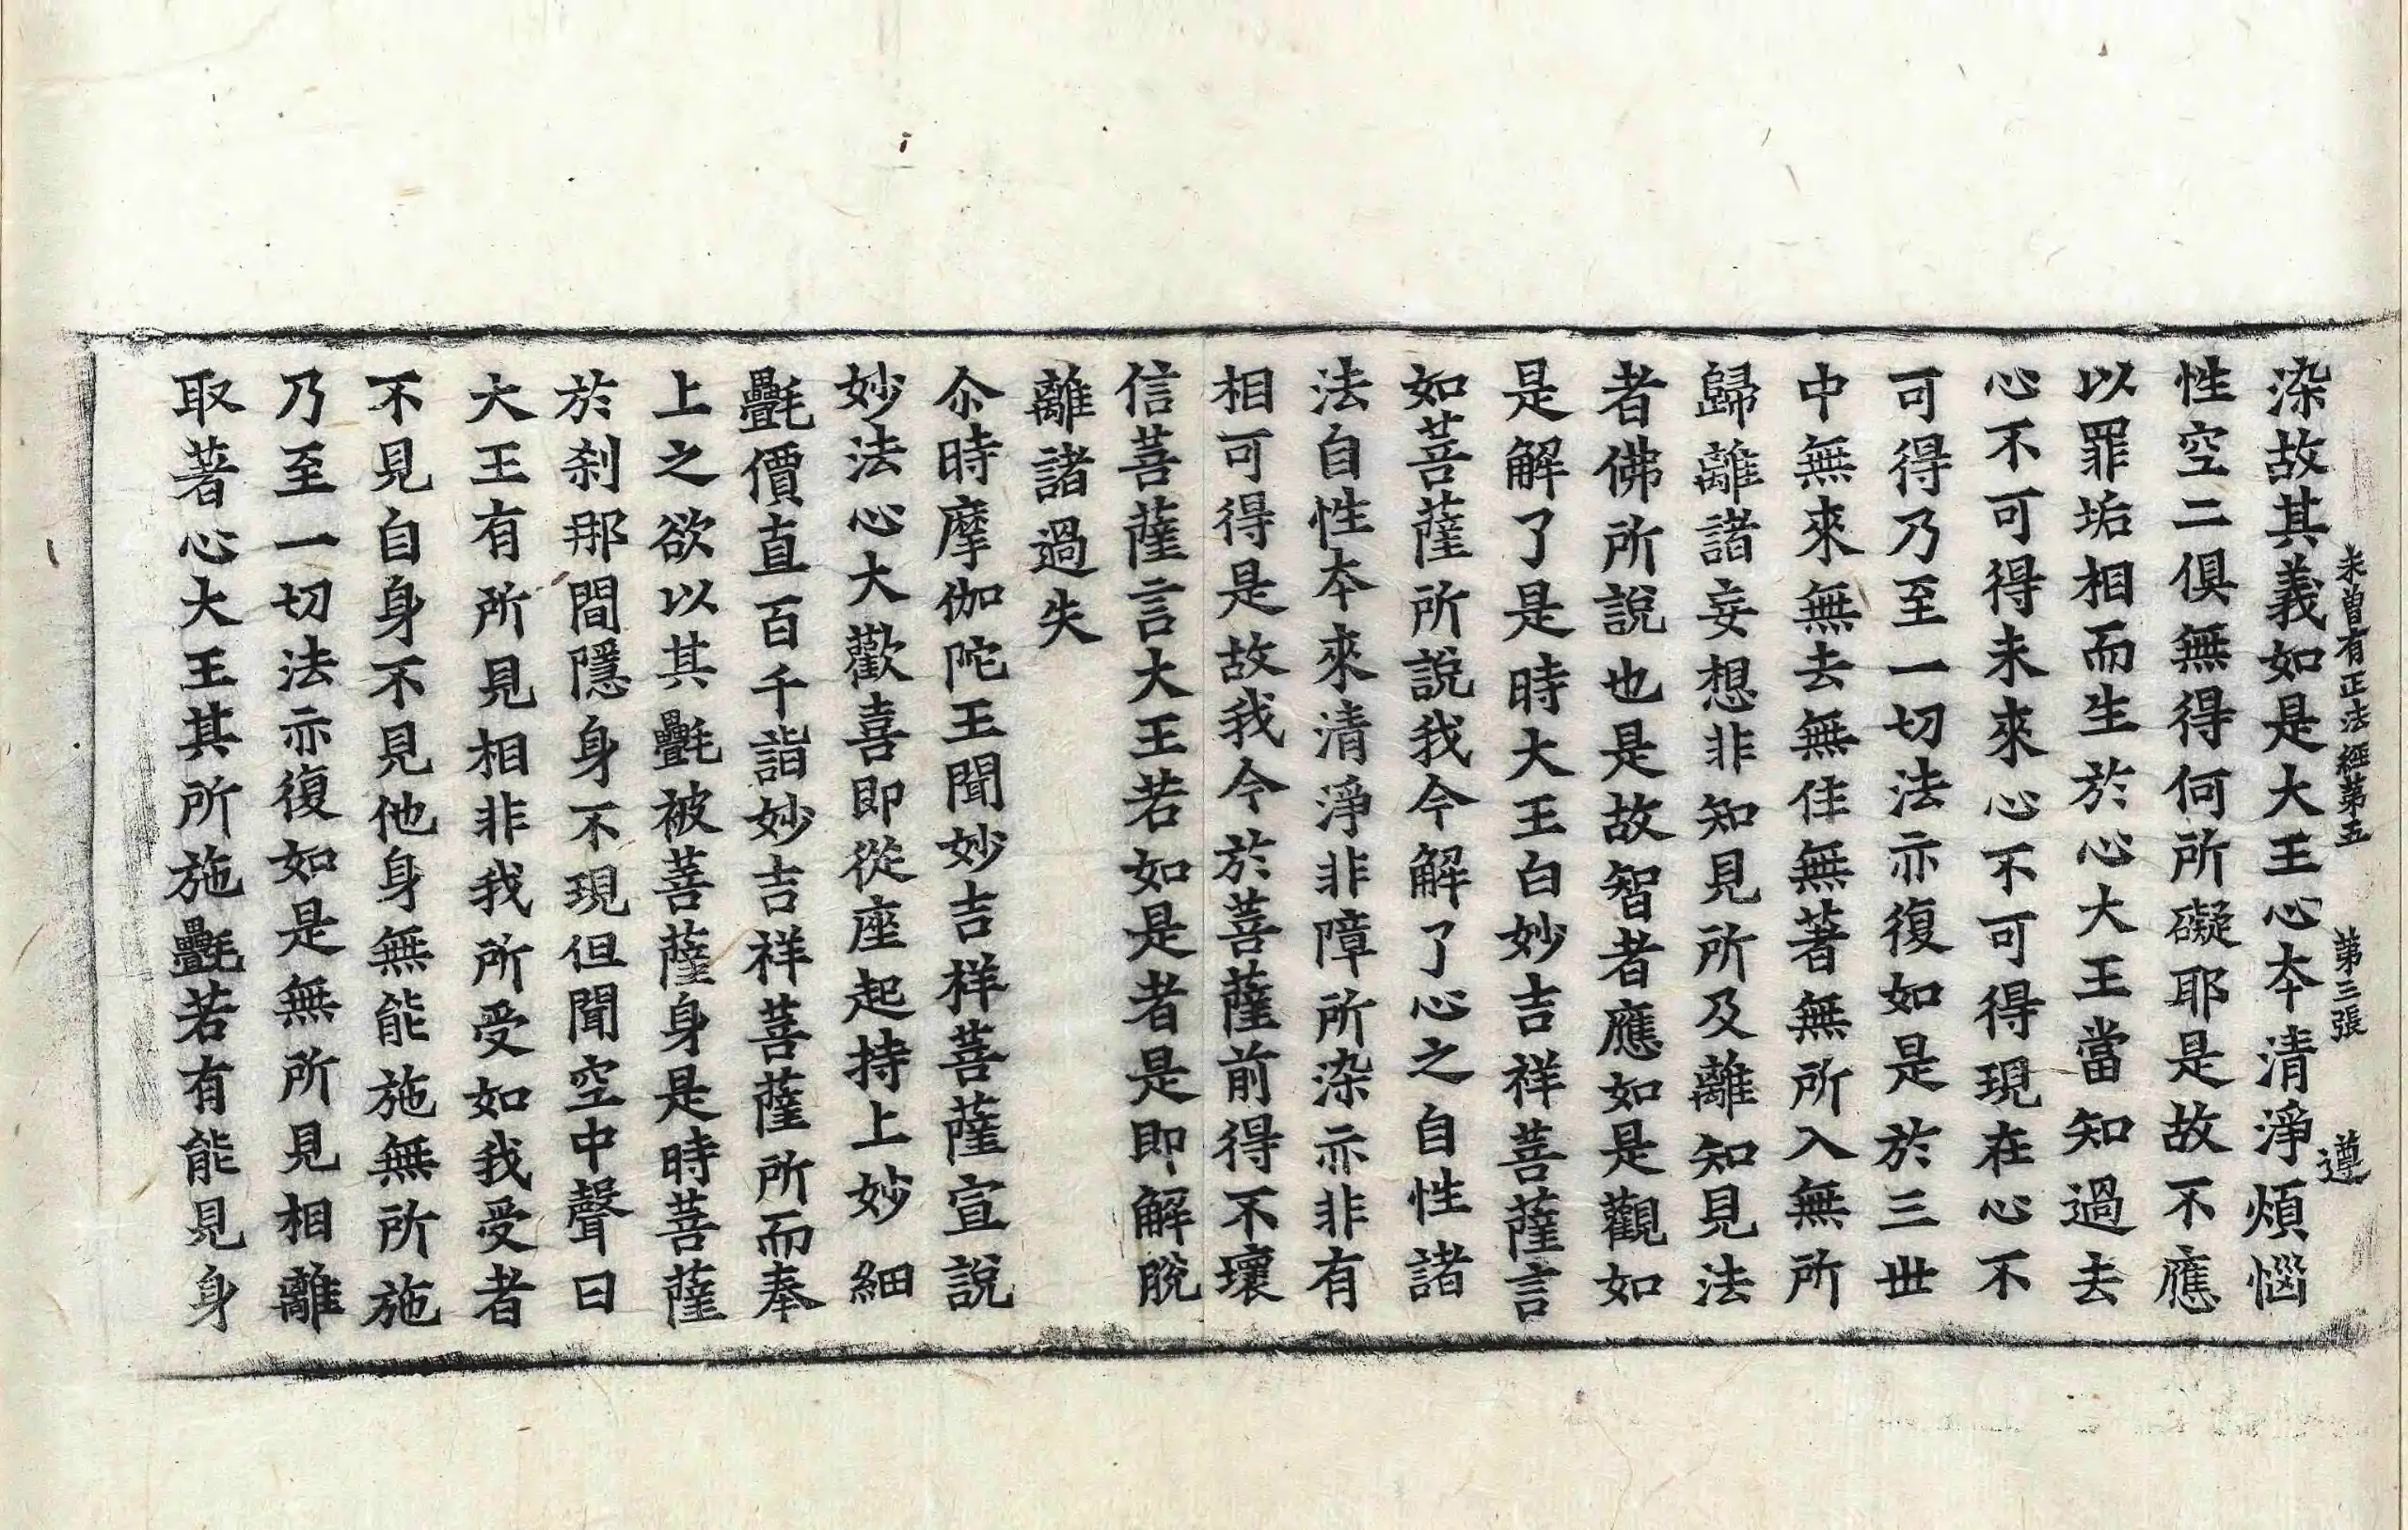 未曾有正法經第五　第三張　遵
染故其義如是大王心本清淨煩惱
性空二俱無得何所礙耶是故不應
以罪垢相而生於心大王當知過去
心不可得未來心不可得現在心不
可得乃至一切法亦復如是於三世
中無來無去無住無著無所入無所
歸離諸妄想非知見所及離知見法
者佛所說也是故智者應如是觀如
是解了是時大王白妙吉祥菩薩言
如菩薩所說我今解了心之自性諸
法自性本來清淨非障所染亦非有
相可得是故我今於菩薩前得不壞
信菩薩言大王若如是者是即解脫
離諸過失
尒時摩伽陀王聞妙吉祥菩薩宣說
妙法心大歡喜即從座起持上妙細
㲲價直百千詣妙吉祥菩薩所而奉
上之欲以其㲲被菩薩身是時菩薩
於刹那間隱身不現但聞空中聲曰
大王有所見相非我所受如我受者
不見自身不見他身無能施無所施
乃至一切法亦復如是無所見相離
取著心大王其所施㲲若有能見身